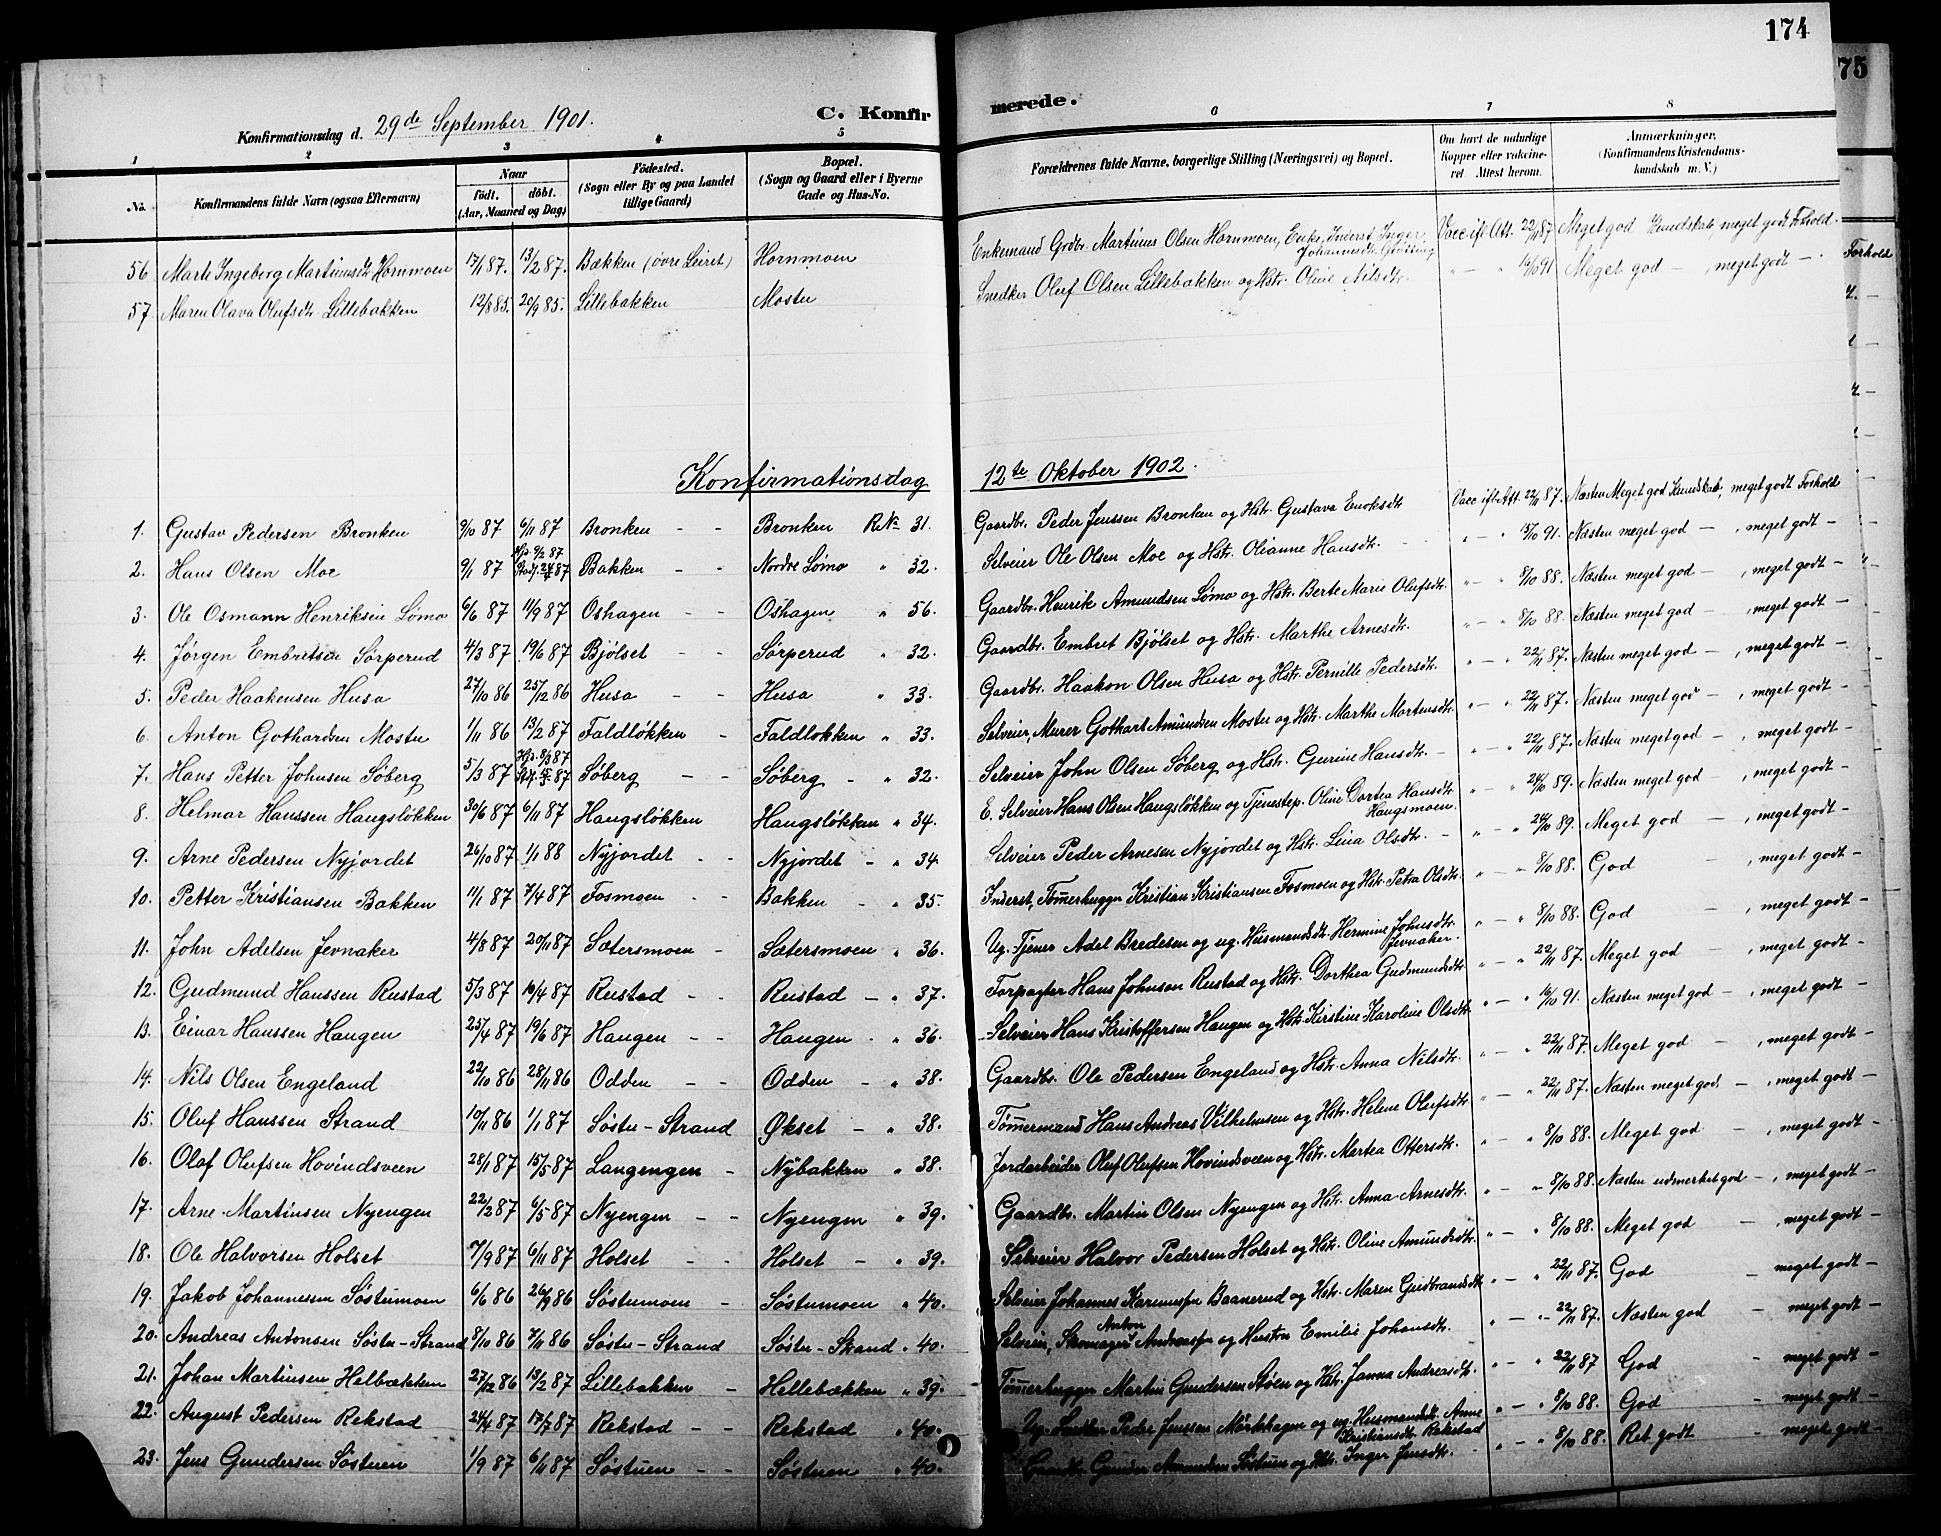 174
75
Konfirmationsdag d. 29de September 1901.
C. Konfirmerede.
1 2 3 4 5 6 7 8
No. Konfirmandens fulde Navn (ogsaa Efternavn) Naar født. døbt. (Aar, Maaned og Dag) Fødested. (Sogn eller By og paa Landet tillige Gaard) Bopæl. (Sogn og Gaard eller i Byerne Gade og Hus-No. Forældrenes fulde Navne, borgerlige Stilling (Næringsvei) og Bopæl. Om havt de naturlige Kopper eller vaccineret. Attest herom. Anmærkninger. (Konfirmandens Kristendomskundskab m. V.)
56. Marte Ingeborg Martinusdtr. Hornmoen 17/1 87. 13/2 87. Bækken (øvre Leiret) Hornmoen Enkemand Grdbr. Martinus Olsen Hornmoen, Enke, Inderst, Inger Johannesdtr. Vacc. ifl. Att. 22/11 87 Meget god Kundskab meget godt Forhold.
57. Maren Olava Olufsdtr. Lillebakken 12/8 85. 20/9 85. Lillebakken Mostu Snedker Oluf Olsen Lillebakken og Hstr. Oline Nilsdtr. " — " 16/10 91. Meget god — , meget godt — .
Forhold
Konfirmationsdag 12te Oktober 1902.
1. Gustav Pedersen Bronken 9/10 87 6/11 87 Bronken - - Bronken RNo 31. Gaardbr. Peder Jenssen Bronken og Hstr. Gustava Enoksdtr. Vacc. ifl. Att. 22/11 87. Næsten Meget god Kundskab, meget godt Forhold
2. Hans Olsen Moe 9/1 87 Hjd. 9/2 87 Stadf. 87 Bakken - - Nordre Lømo " 32. Selveier Ole Olsen Moe og Hstr. Olianne Hansdtr. " — " 91. Næsten meget god — , meget godt —
3. Ole Osmann Henriksen Lømo 6/6 87 11/9 87 Oshagen - - Oshagen " 56. Gaardbr. Henrik Amundsen Lømo og Hstr. Berte Marie Olufsdtr. " — " 8/10 88. Næsten meget god — , meget godt —
4. Jørgen Embretsen Sørperud 4/3 87 19/6 87 Bjølset - - Sørperud " 32. Gaardbr. Embret Bjølset og Hstr. Marthe Arnesdtr. " — " 8/10 88. Næsten meget god — , meget godt —
5. Peder Haakensen Husa 27/10 86 25/12 86 Husa - - Husa " 33. Gaardbr. Haakon Olsen Husa og Hstr. Pernille Pedersdtr. " — " 22/11 87. Næsten meget god — , meget godt —
6. Anton Gothardsen Mostu 1/11 86 13/2 87 Faldløkken - Faldløkken " 33. Selveier, Murer Gothart Amundsen Mostu og Hstr. Marthe Martensdtr. " — " 22/11 87. Næsten meget god — , meget godt —
7. Hans Petter Johnsen Søberg 5/3 87 Hjd. 8/3 87 Stdf. 87 Søberg - - Søberg - " 32. Selveier John Olsen Søberg og Hstr. Gurine Hansdtr. — " — " 22/11 87. Næsten meget god — , meget godt —
8. Helmar Hanssen Haugsløkken 30/6 87 6/11 87 Haugsløkken Haugsløkken " 34. E. Selveier Hans Olsen Haugsløkken og Tjenestep. Oline Dortea Hansdtr. Haugsmoen. " — " 24/10 89. Næsten meget god — , meget godt —
9. Arne Pedersen Nyjordet 26/10 87 1/1 88 Nyjordet - - Nyjordet - " 34. Selveier Peder Arnesen Nyjordet og Hstr. Lina Olsdtr. - " — " 24/10 89. Meget god — , meget godt —
10. Petter Kristiansen Bakken 11/1 87 7/4 87 Fosmoen - - Bakken - " 35. Inderst, Tømmerhugger Kristian Kristiansen Fosmoen og Hstr. Petra Olsdtr. " — " 8/10 88. God — , meget godt —
11. John Adelsen Jevnaker 4/8 87 20/11 87 Sætersmoen - Sætersmoen " 36. Ug. Tjener Adel Bredesen og ug. Husmandsdtr. Hermine Johnsdtr. Jevnaker. " — " 8/10 88. God — , meget godt —
12. Gudmund Hanssen Rustad 5/3 87 10/4 87 Rustad - - Rustad - " 37. Forpagter Hans Johnsen Rustad og Hstr. Dorthea Gudmundsdtr. " — " 22/11 87. Meget god — , meget godt —
13. Einar Hanssen Haugen 25/4 87 19/6 87 Haugen - - Haugen - " 36. Selveier Hans Kristoffersen Haugen og Hstr. Kirstine Karoline Olsdtr. " — " 16/10 91. Næsten meget god — , meget godt —
14. Nils Olsen Engeland 22/10 86 28/11 86 Odden - - Odden - " 38. Gaardbr. Ole Pedersen Engeland og Hstr. Anna Nilsdtr. " — " 22/11 87. Meget god — , meget godt —
15. Oluf Hanssen Strand 10/11 86 1/1 87 Søstu-Strand Økset - " 38. Tømmermand Hans Andreas Vilhelmsen og Hstr. Helene Olufsdtr. " — " 22/11 87. Næsten meget god. — , meget godt —
16. Olaf Olufsen Hovindsveen 28/1 87 15/5 87 Langengen - Nybakken " 38. Jordarbeider Oluf Olufsen Hovindsveen og Hstr. Martea Ottersdtr. " — " 8/10 88. Meget god — , meget godt —
17. Arne Martinsen Nyengen 22/2 87 6/5 87 Nyengen - - Nyengen " 39. Gaardbr. Martin Olsen Nyengen og Hstr. Anna Arnesdtr. " — " 8/10 88. Næsten udmerket god — , meget godt —
18. Ole Halvorsen Holset 7/9 87 6/11 87 Holset - - Holset - " 39. Selveier Halvor Pedersen Holset og Hstr. Oline Amundsdtr. " — " 8/10 88. Meget god — , meget godt —
19. Jakob Johannessen Søstumoen 6/6 86 26/9 86 Søstumoen - Søstumoen " 40. Selveier Johannes Baanerud og Hstr. Maren Gudbrandsdtr. " — " 22/11 87. God — meget godt —
20. Andreas Antonsen Søstu-Strand 8/10 86 7/11 86 Søstu-Strand Søstu-Strand " 40. Selveier, Skomager Anton og Hustru Emilie Johansdtr. " — " 22/11 87. Næsten god — meget godt —
21. Johan Martinsen Helbækken 27/12 86 13/2 87 Lillebakken - Hellebækken " 39. Tømmerhugger Martin Gundersen Støen og Hstr. Janna Andreasdtr. " — " 22/11 87 God - meget godt —
22. August Pedersen Rekstad 24/4 87 17/7 87 Rekstad - - Rekstad " 40. Ug. Peder Jenssen Mørkhagen og ug. Husmandsdtr. Anne Kristiansdtr. Rekstad " — " 8/10 88. God - meget godt —
23. Jens Gundersen Søstuen 1/9 87 6/11 87 Søstuen - - Søstuen " 40. Gaardbr. Gunder Amundsen Søstuen og Hstr. Inger Jensdtr. - " — " 8/10 88. Ret godt - meget godt —